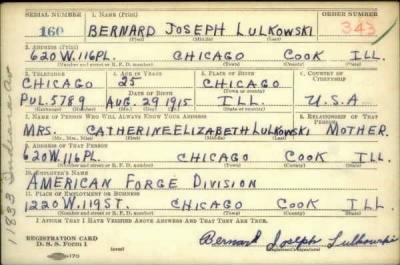 SERIAL NUMBER 1. NAME (Print) ORDER NUMBER
160 BERNARD JOSEPH LULKOWSKI 343
(First) (Middle) (Last)
2. ADDRESS (Print)
620 W. 116 PL. CHICAGO COOK ILL.
(Number and street or R. F. D. number) (Town) (County) (State)
3. TELEPHONE 4. AGE IN YEARS 5. PLACE OF BIRTH 6. COUNTRY OF CITIZENSHIP
CHICAGO 25 CHICAGO
DATE OF BIRTH (Town or county)
PUL. 5789 AUG. 29 1915 ILL. U.S.A
(Exchange) (Number) (Mo.) (Day) (Yr.) (State or country)
7. NAME OF PERSON WHO WILL ALWAYS KNOW YOUR ADDRESS 8. RELATIONSHIP OF THAT PERSON
MRS. CATHERINE ELIZABETH LULKOWSKI MOTHER.
(Mr., Mrs., Miss) (First) (Middle) (Last)
9. ADDRESS OF THAT PERSON
620 W. 116 PL. CHICAGO COOK ILL.
(Number and street or R. F. D. number) (Town) (County) (State)
10. EMPLOYER'S NAME
AMERICAN FORGE DIVISION
11. PLACE OF EMPLOYMENT OR BUSINESS
1220 W. 119 ST. CHICAGO COOK ILL.
(Number and street or R. F. D. number) (Town) (County) (State)
I AFFIRM THAT I HAVE VERIFIED ABOVE ANSWERS AND THAT THEY ARE TRUE.
REGISTRATION CARD
D. S. S. Form 1 (over) Bernard Joseph Lulkowski
(Registrant's signature)
1833